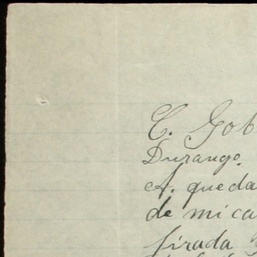 C. Gob
Durango.
A. queda
de mi ca
firada